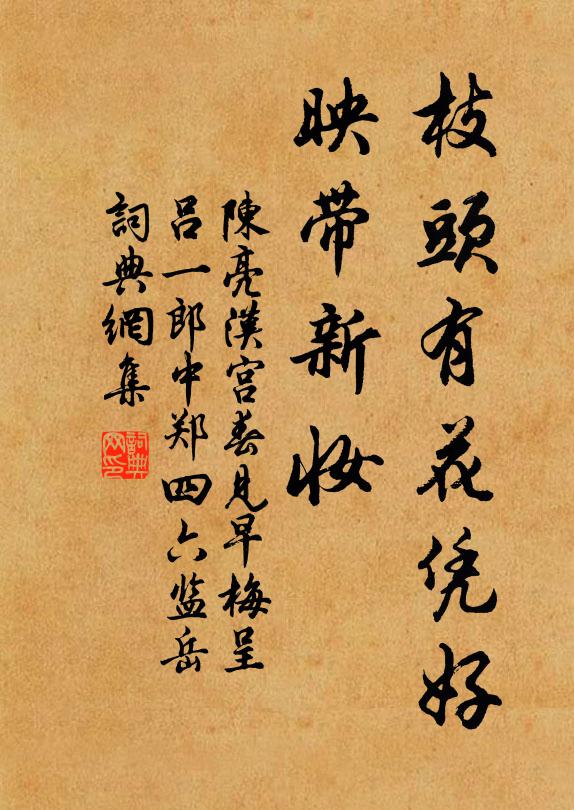 枝頭有花凭好
映带新妝
陳亮漢宫春見早梅呈
吕一郎中郑四六监岳
詞典網集
詞典网印